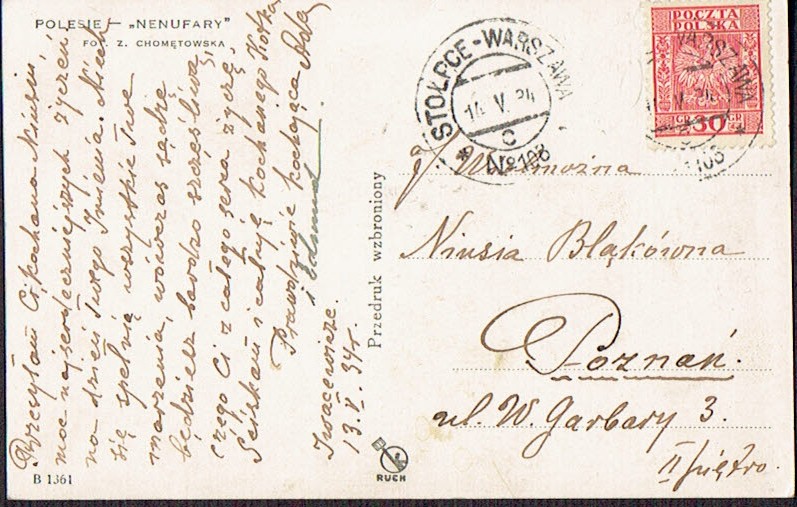 POLESIE — „NENUFARY"
FOT. Z. CHOMĘTOWSKA
Przesyłam Ci, kochana Niusiu
moc najserdeczniejszych życzeń
na dzień Twego Imienia. Niech
się spełnią wszystkie Twe
marzenia, wówczas sądzę
będziesz bardzo szczęśliwą,
czego Ci z całego serca życzę.
Ściskam i całuję kochanego Kotka
Prawdziwie kochająca Ada
i Edmund
Iwacewicze.
13.V.34r.
B 1361
Przedruk wzbroniony
RUCH
STOŁPCE - WARSZAWA
14.V.34
C
* No 108
POCZTA
POLSKA
GR 30 GR
WARSZAWA
V.34
108
J/Wielmożna
Niusia Bląkówna
Poznań.
ul. W. Garbary 3.
II piętro.